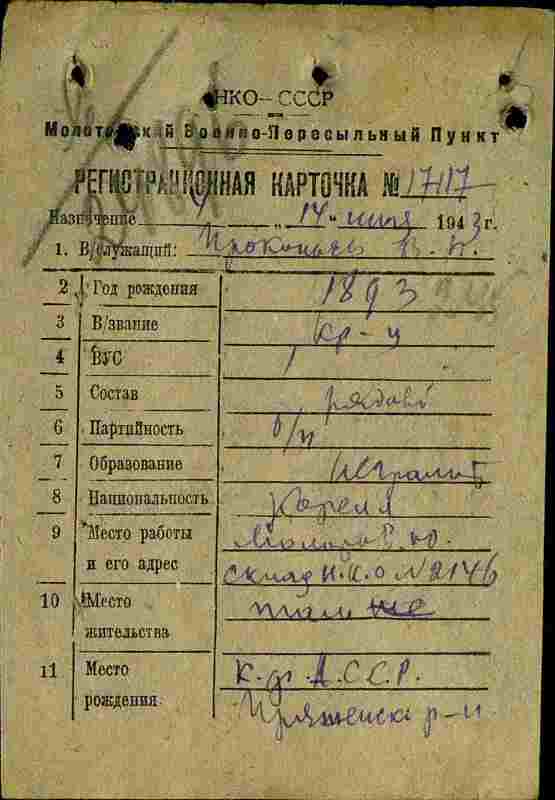 НКО–СССР
Молотовский Военно-Пересыльный Пункт
РЕГИСТРАЦИОННАЯ КАРТОЧКА № 17117
Назначение „14“ июля 1943 г.
1. В/служащий: Прокопьев В. П.
2 Год рождения 1893
3 В/звание Кр-ц
4 ВУС
5 Состав рядовой
6 Партийность б/п
7 Образование
8 Национальность Карел
9 Место работы
и его адрес склад Н.К.О № 2146
10 Место там же
жительства
11 Место К.Ф.С.С.Р.
рождения р-н